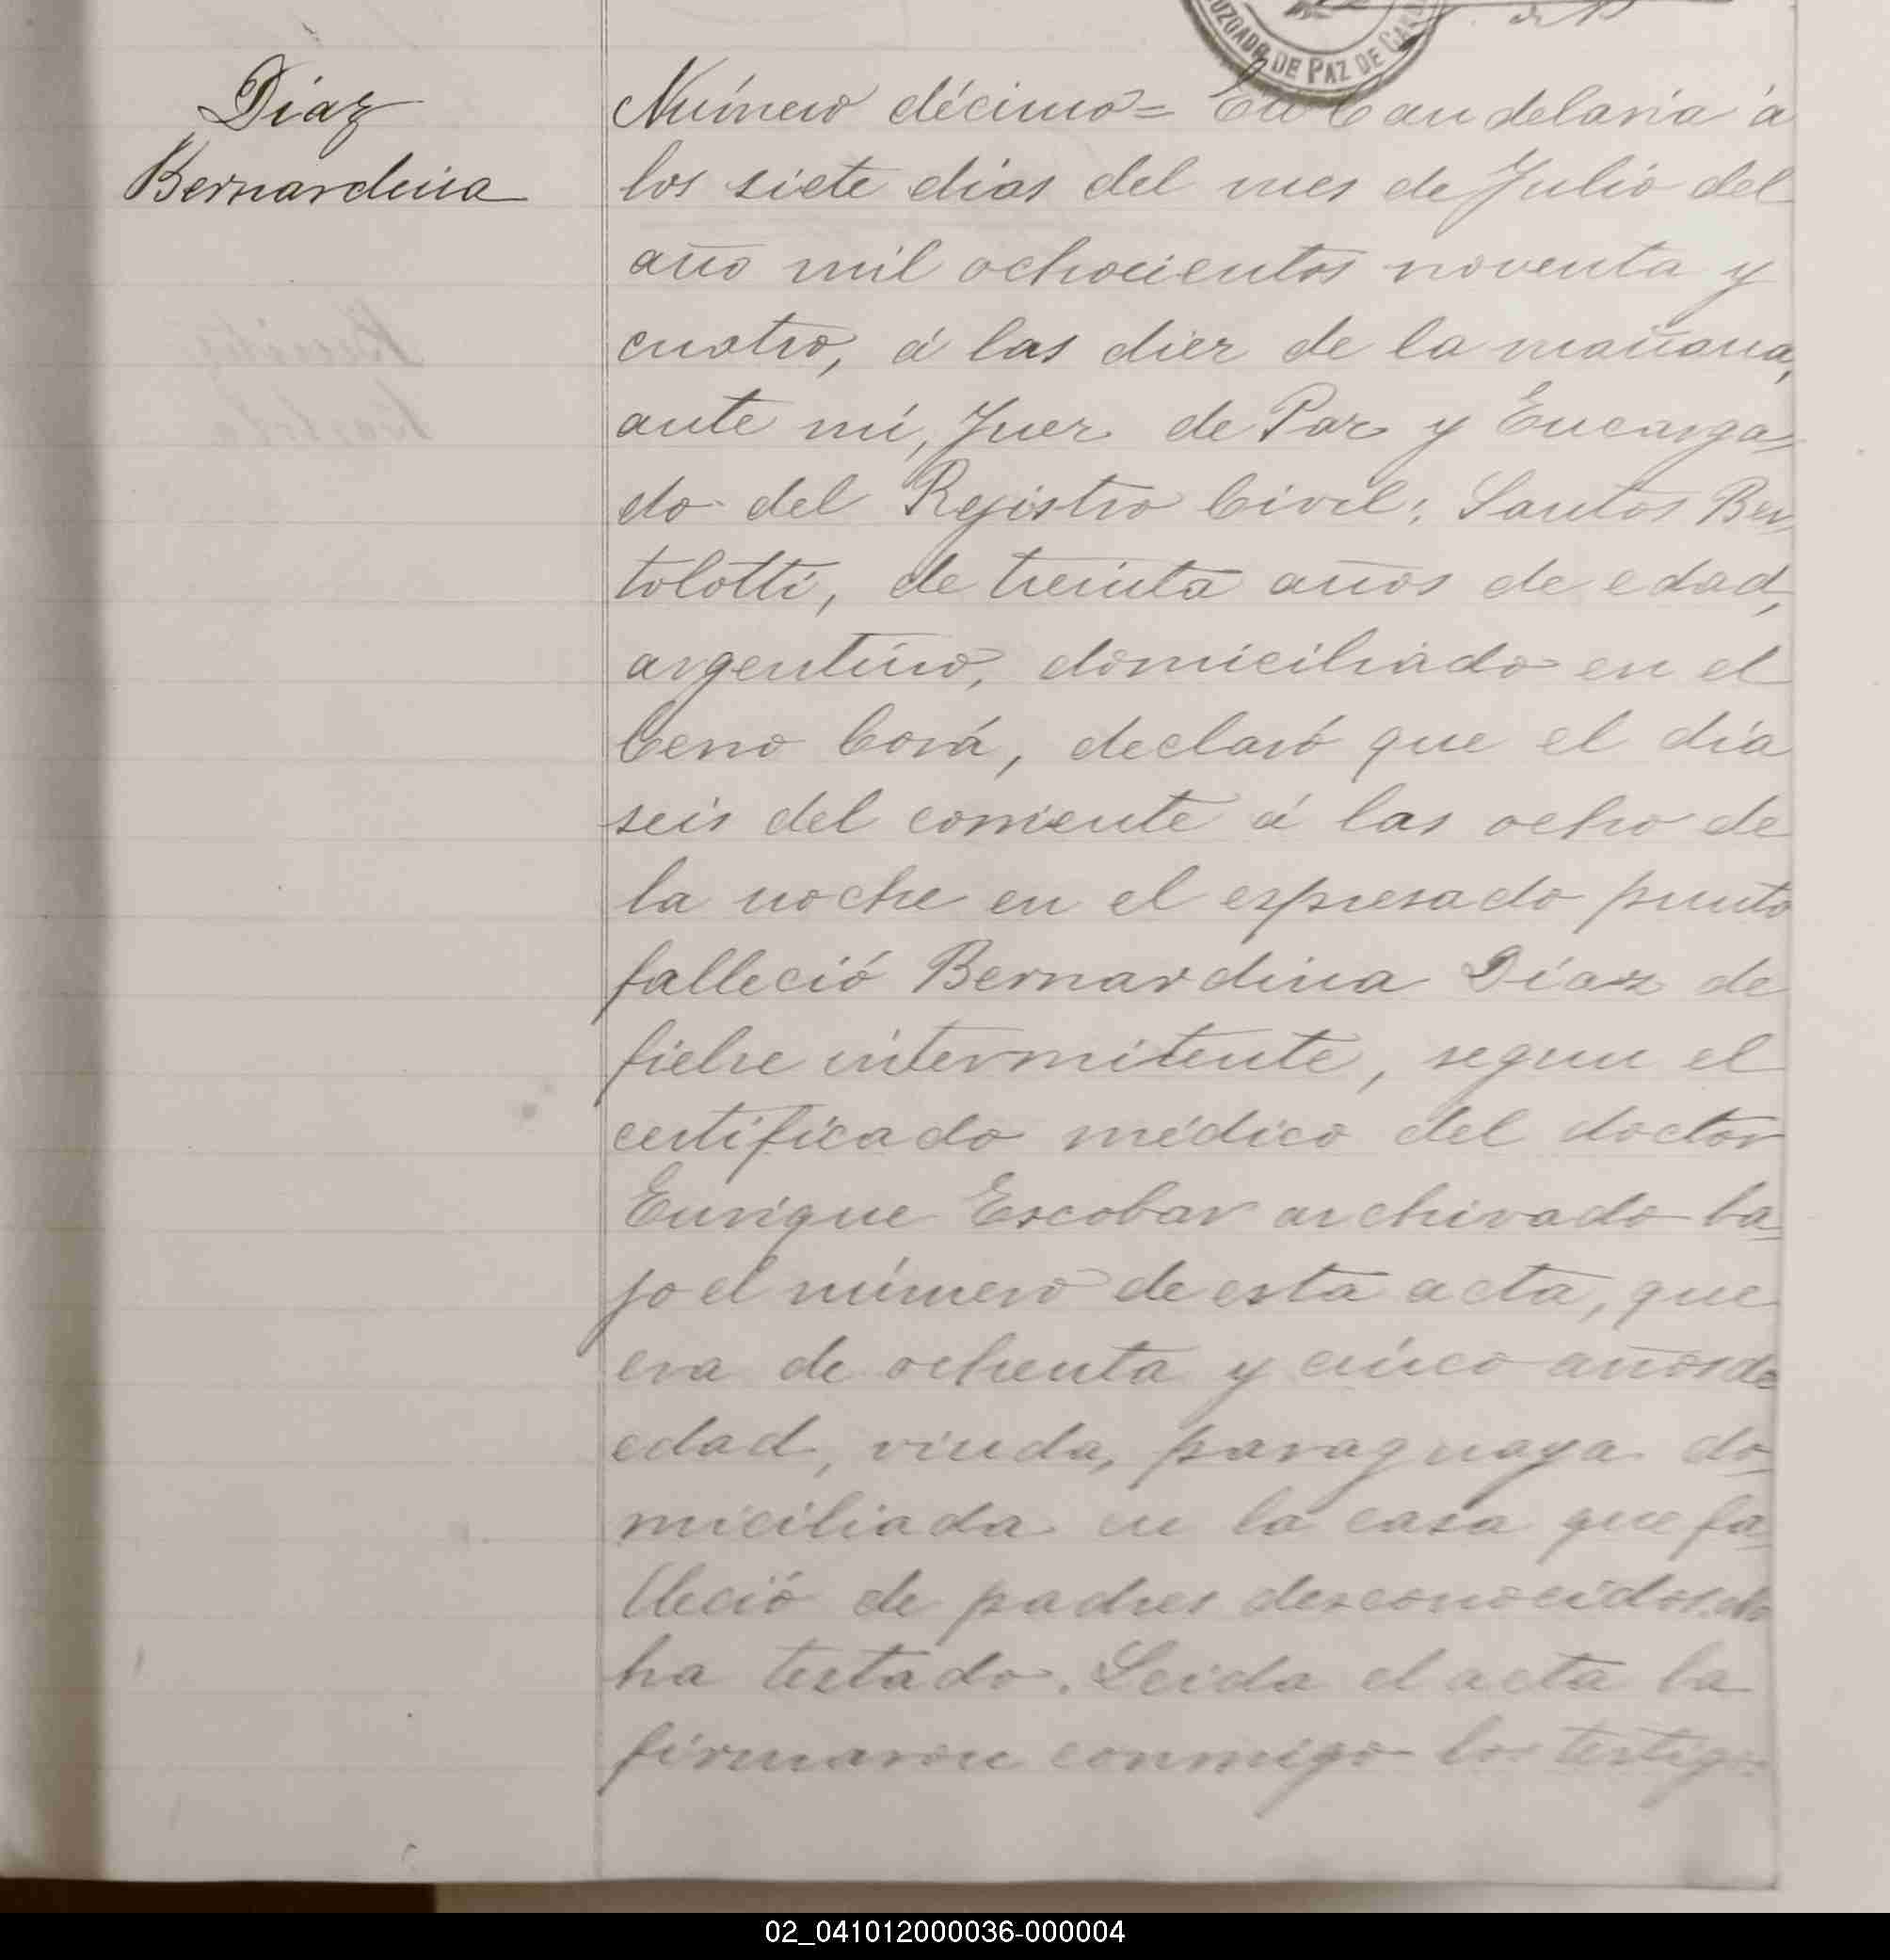 JUZGADO DE PAZ DE CAN
Díaz
Bernardina
Número décimo= En Candelaria á
los siete días del mes de Julio del
año mil ochocientos noventa y
cuatro, á las diez de la mañana,
ante mí, Juez de Paz y Encarga-
do del Rejistro Civil: Santos Ber-
tolotti, de treinta años de edad,
argentino, domiciliado en el
Cerro Corá, declaró que el día
seis del corriente á las ocho de
la noche en el espresado punto
falleció Bernardina Díaz de
fiebre intermitente, segun el
certificado médico del doctor
Enrique Escobar archivado ba-
jo el número de esta acta, que
era de ochenta y cinco años de
edad, viuda, paraguaya do-
miciliada en la casa que fa-
lleció de padres desconocidos. No
ha testado. Leida el acta la
firmaron conmigo los testigos
02_041012000036-000004